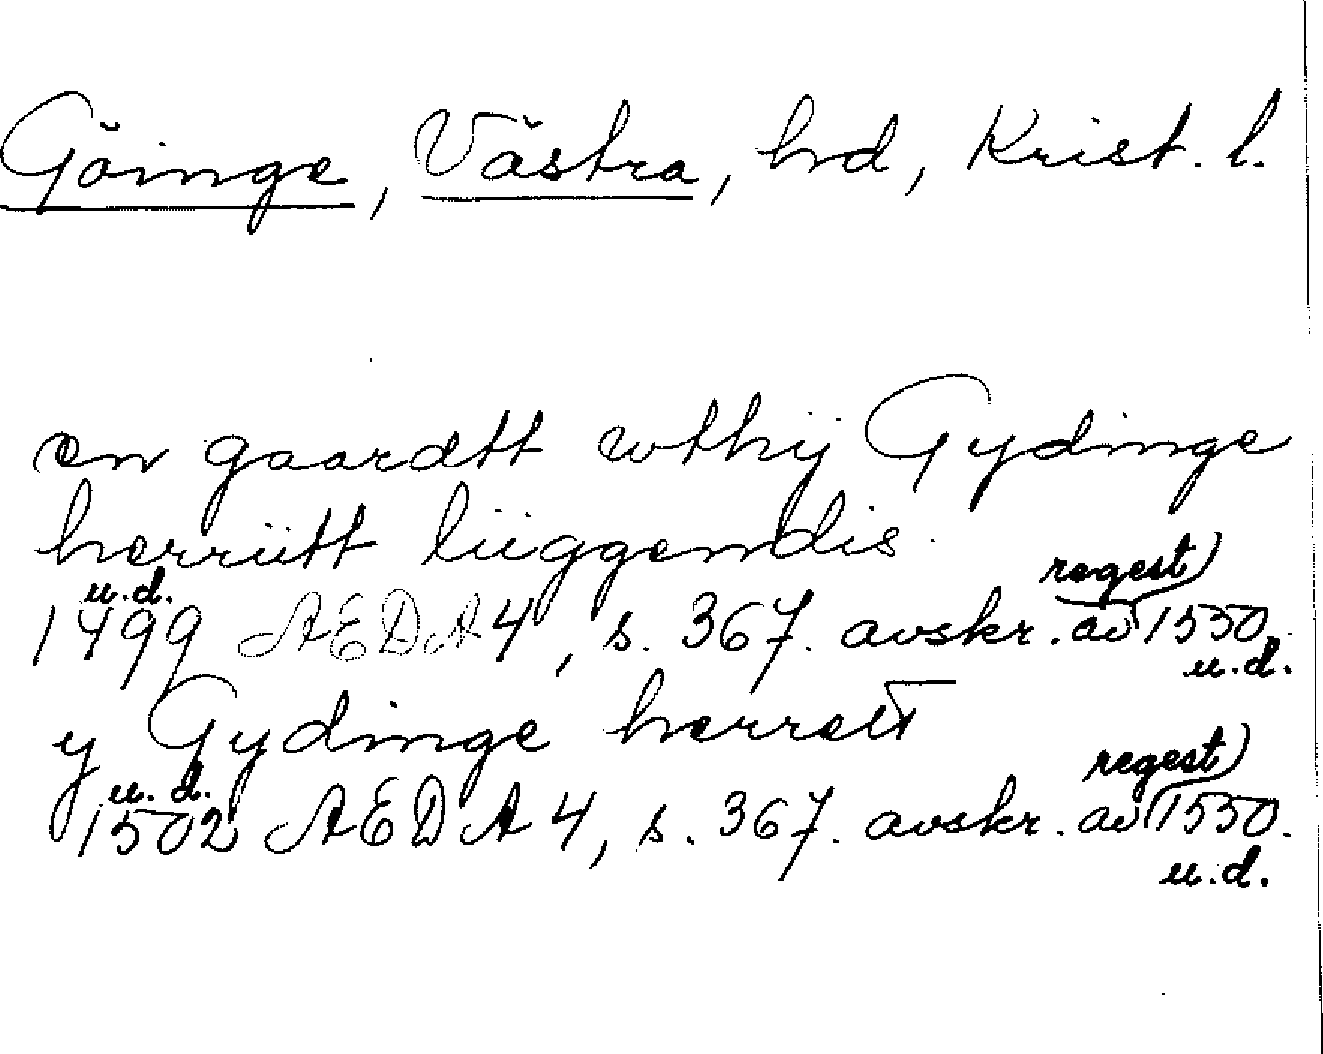 Göinge, Västra, hd, Krist. l.
en gaardtt wthij Gydinge
herriitt liiggendis.
1499 u.d. AEDA 4, s. 367. avskr. av regest) 1550. u.d.
y Gydinge herrett
1502 u.d. AEDA 4, s. 367. avskr. av regest) 1550. u.d.